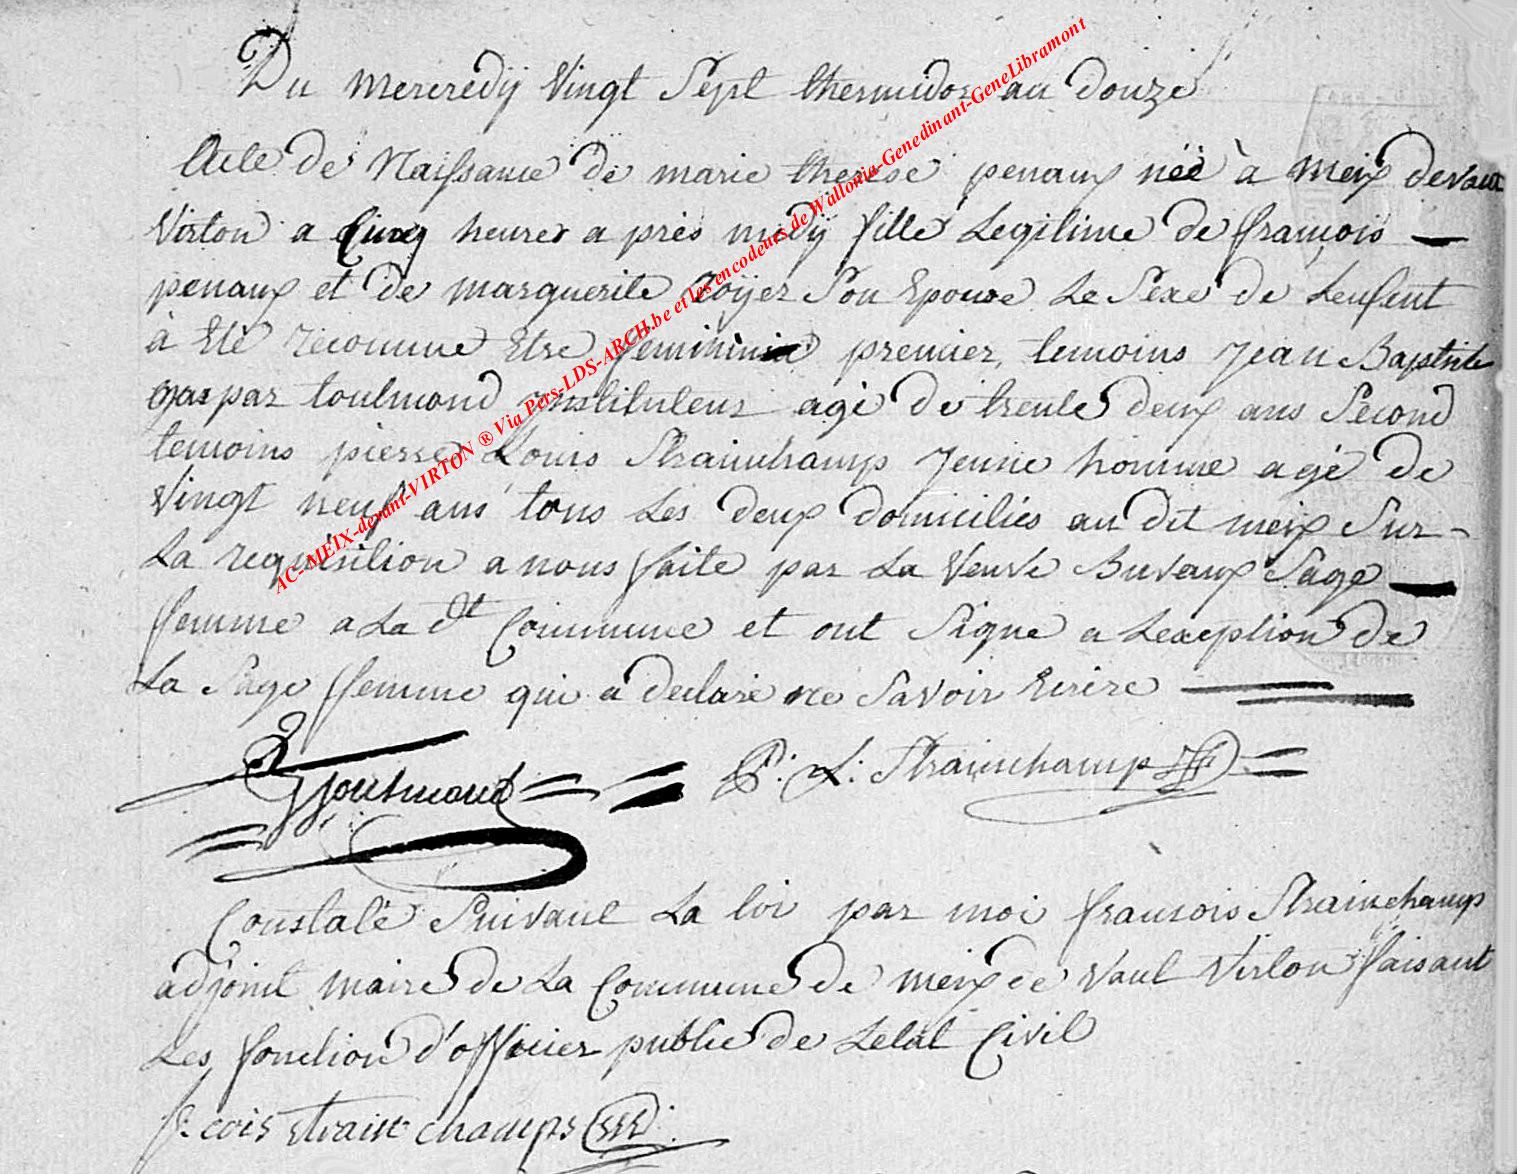 Du mercredÿ Vingt Sept thermidor an douze
Acte de Naissance de marie therese penaux néé à Meix devant
Virton a Cinq heures a près midÿ fille Legitime de françois
penaux et de marguerite Goÿer Son Epouse Le Sexe de Lenfent
à Eté recounue Etre feminin premier temoins Jean Baptiste
gaspar toulmond instituteur agé de trente deux ans Second
temoins pierre Louis Strainchamp Jeune homme agé de
Vingt neuf ans tous Les deux domiciliés au dit meix Sur
La requisition a nous faite par La Veuve Buvaux Sage
femme a La dt Commune et ont Signe a Lexeption de
La Sage femme qui a declaré ne Savoir Ecrire
Toulmond P. L. Strainchamp
Constaté Suivant La loi par moi francois Strainchamp
adjoint maire de La Commune de meix de Vant Virton faisant
Les fonction d'officier public de Letat Civil
f. cois strainchamps
AC-MEIX-devant-VIRTON ® Via Pers-LDS-ARCH.be et les encodeurs de Wallonia-Genedinant-GeneLibramont